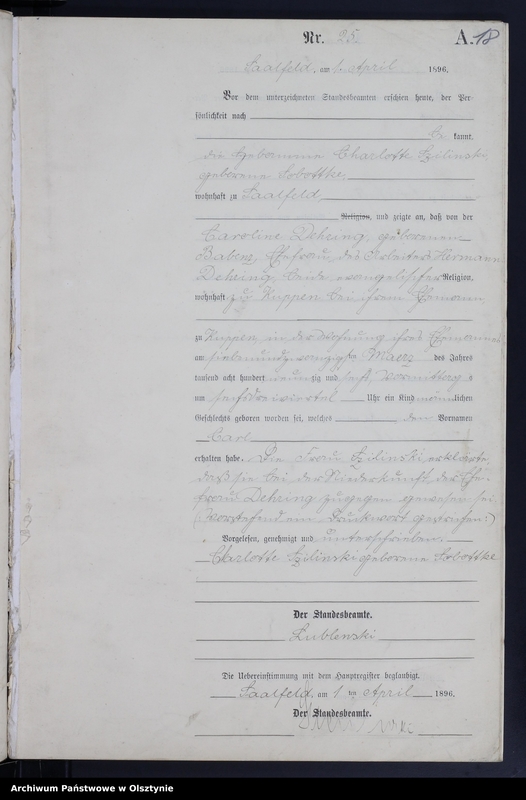 Nr. 25
A. 18
Saalfeld, am 1. April 1896.
Vor dem unterzeichneten Standesbeamten erschien heute, der Per-
sönlichkeit nach
be kannt,
die Hebamme Charlotte Szilinski
geborene Sobottke
wohnhaft zu Saalfeld
Religion, und zeigte an, daß von der
Caroline Dehring, geborenen
Babenz, Ehefrau des Arbeiters Hermann
Dehring, beide evangelischer Religion,
wohnhaft zu Kuppen bei ihrem Ehemann,
zu Kuppen, in der Wohnung ihres Ehemannes
am siebenundzwanzigsten Maerz des Jahres
tausend acht hundert neunzig und sechs, Vormittags
um sechsdreiviertel Uhr ein Kind männlichen
Geschlechts geboren worden sei, welches den Vornamen
Carl
erhalten habe. Die Frau Szilinski erklärte
daß sie bei der Niederkunft der Ehe-
frau Dehring zugegen gewesen sei
(Vorstehend ein Druckwort gestrichen.)
Vorgelesen, genehmigt und unterschrieben.
Charlotte Szilinski geborene Sobottke
Der Standesbeamte.
Lublenski
Die Uebereinstimmung mit dem Hauptregister beglaubigt.
Saalfeld, am 1 ten April 1896.
Der Standesbeamte.
Archiwum Państwowe w Olsztynie